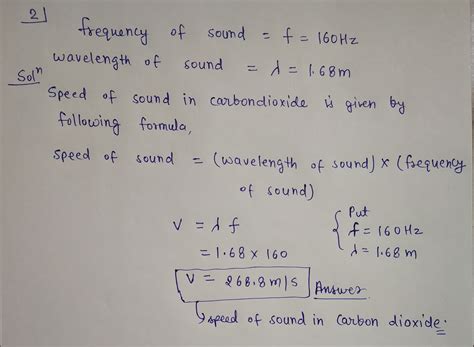 2]
frequency of sound = f = 160Hz
wavelength of sound = λ = 1.68m
Solⁿ
Speed of sound in carbondioxide is given by
following formula,
speed of sound = (wavelength of sound) x (frequency
of sound)
V = λ f
= 1.68 x 160
V = 268.8 m/s Answer
{ Put
f = 160Hz
λ = 1.68 m
↳ speed of sound in carbon dioxide.